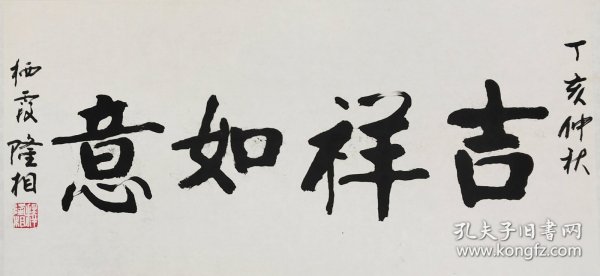 丁亥仲秋
吉祥如意
栖霞 隆相
孔夫子旧书网
www.kongfz.com